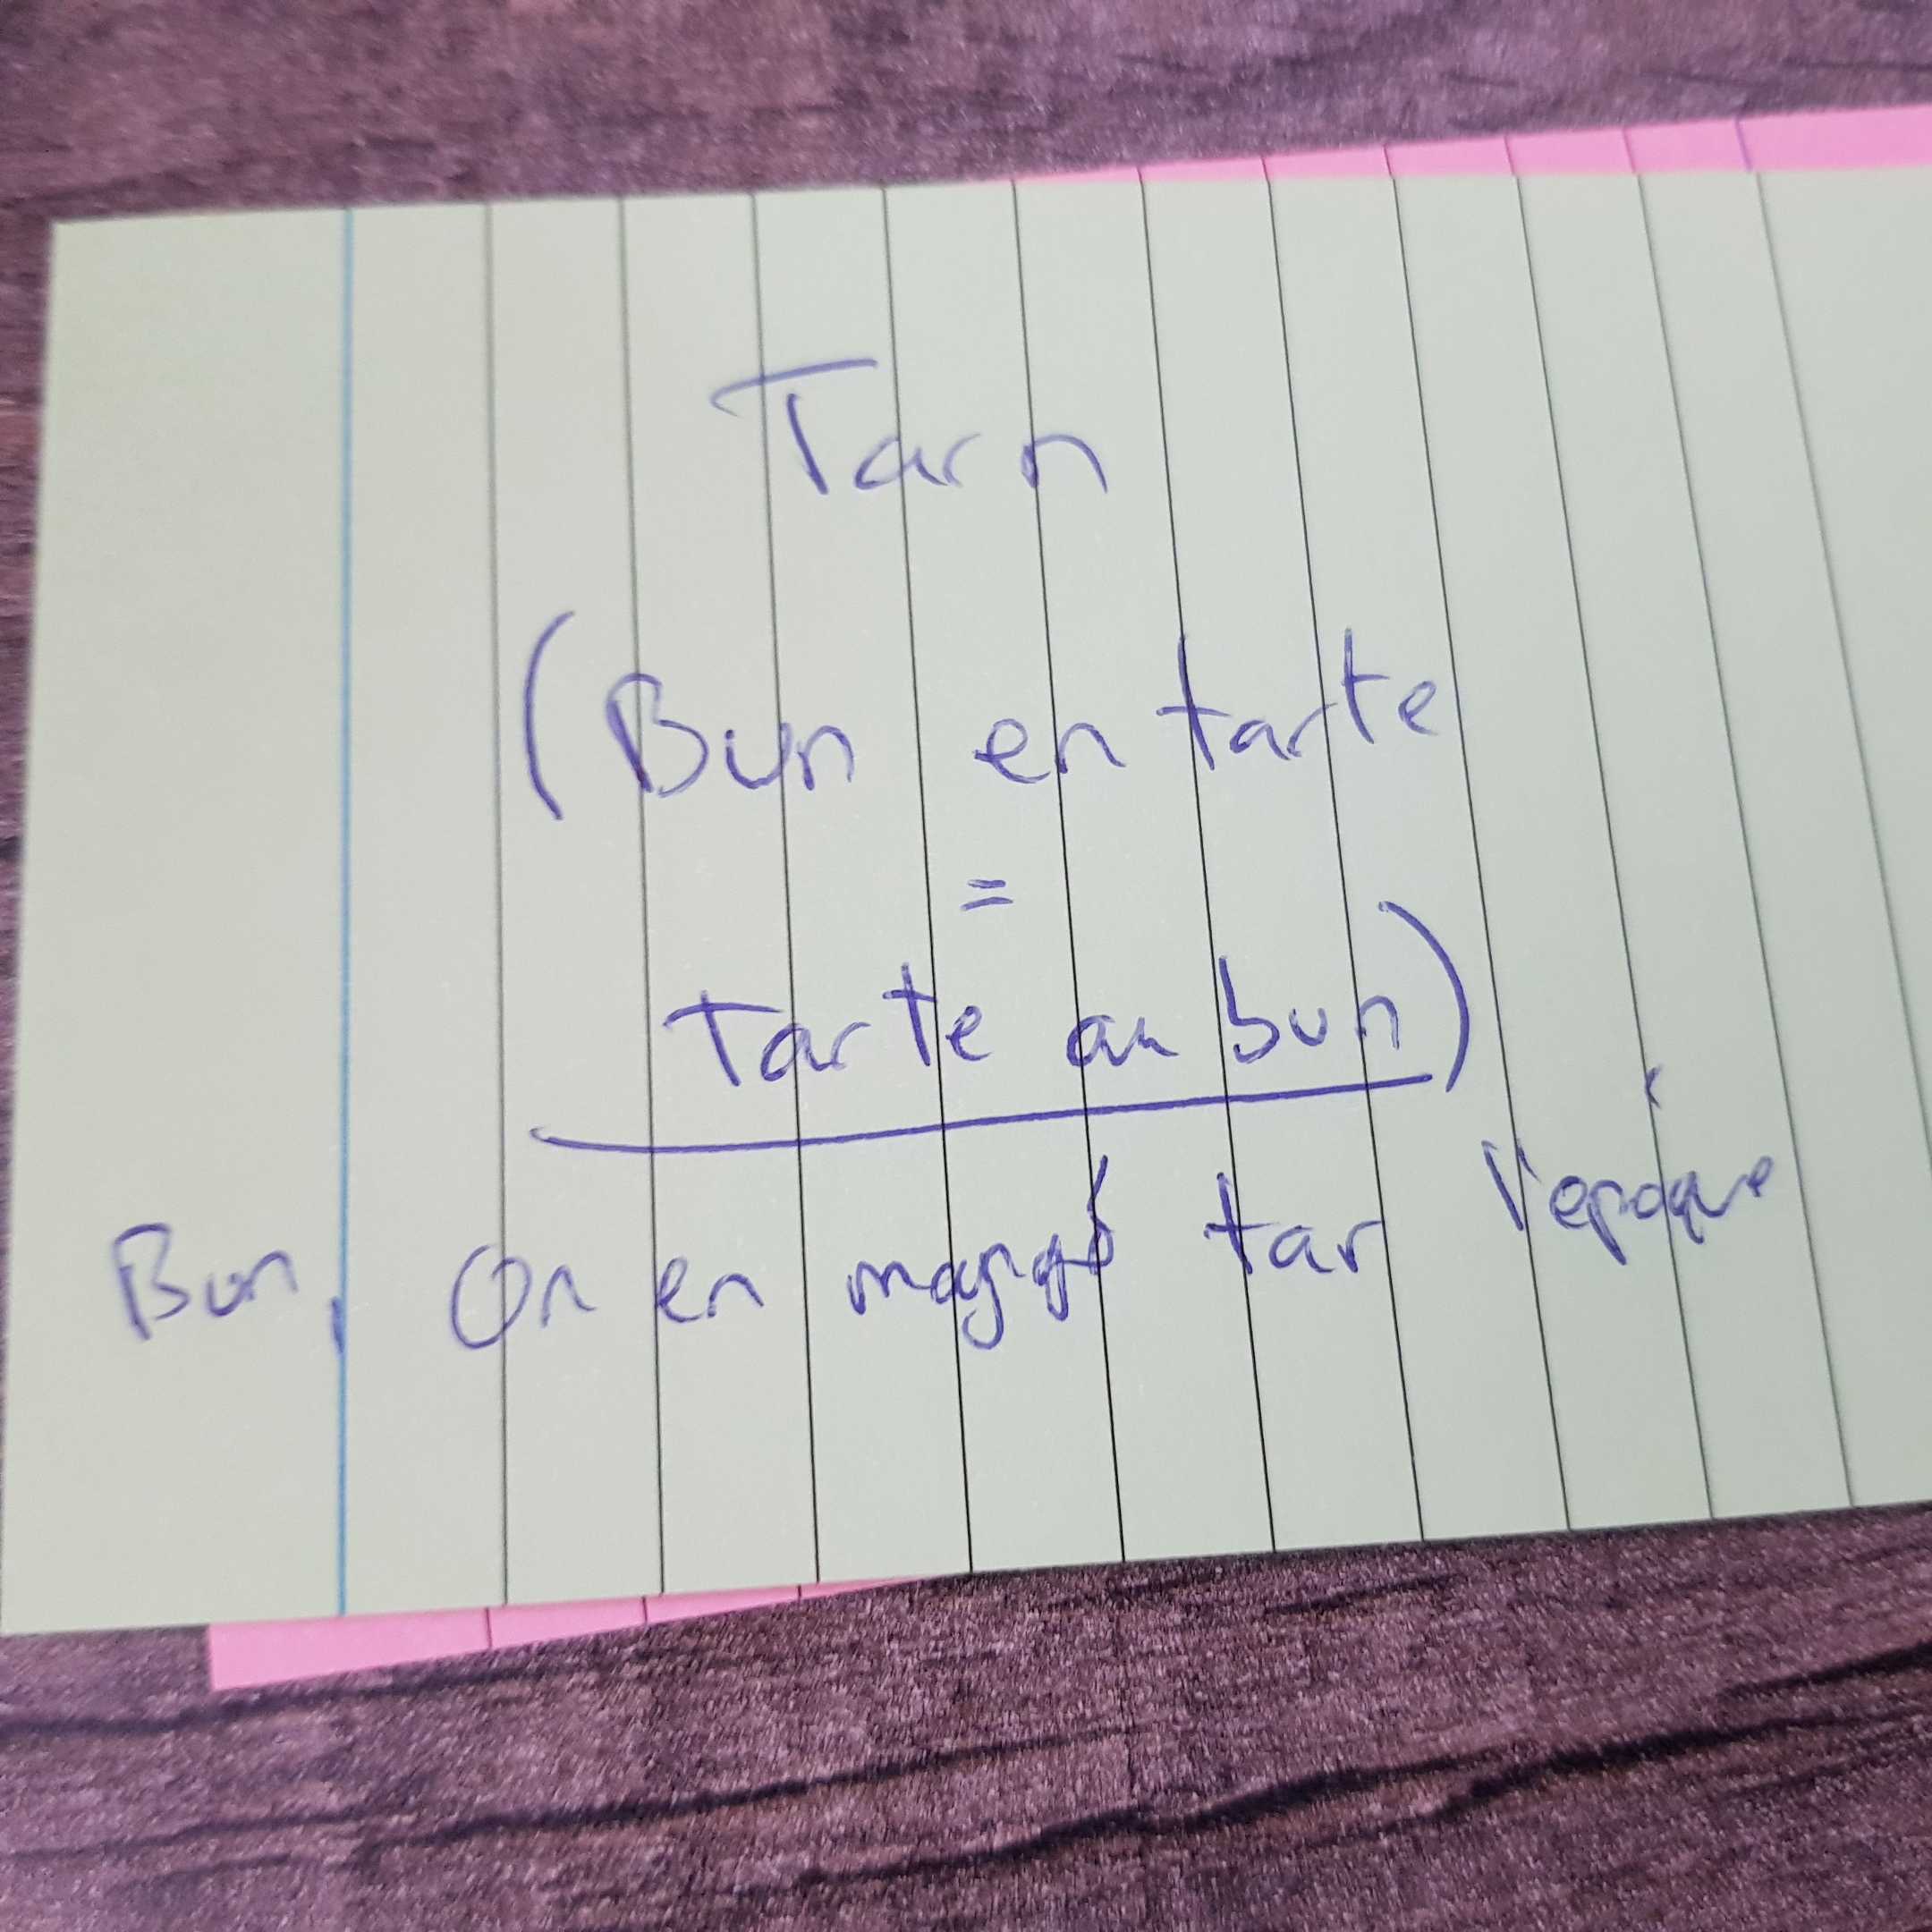 Tarn
(Bun en tarte
=
Tarte au bun)
Bun, on en mangé tar l'époque